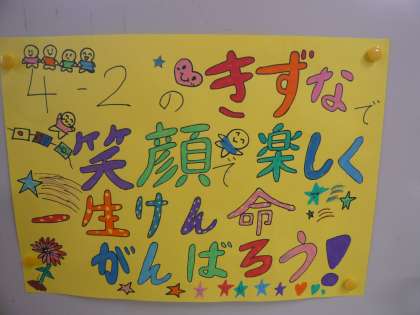 4-2のきずなで
笑顔で楽しく
一生けん命
がんばろう!